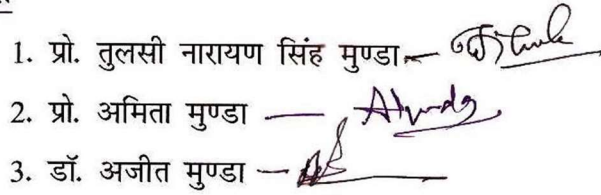 1. प्रो. तुलसी नारायण सिंह मुण्डा –
2. प्रो. अमिता मुण्डा —
3. डॉ. अजीत मुण्डा –